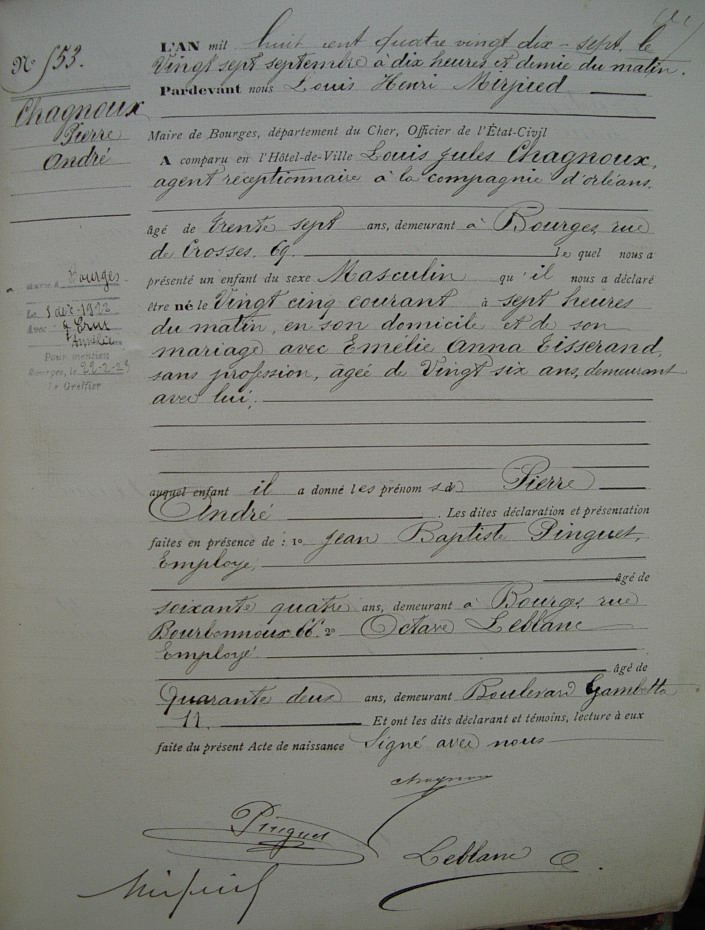 N° 553.
Chagnoux
Pierre
André
Marié à Bourges
Le 1 déc 1922
avec
Pour mention
Bourges, le 22-2-23
Le Greffier
L'AN mil huit cent quatre vingt dix-sept. le
Vingt sept septembre à dix heures et demie du matin.
Pardevant nous Louis Henri Mirpied
Maire de Bourges, département du Cher, Officier de l'État-Civil
A comparu en l'Hôtel-de-Ville Louis Jules Chagnoux,
agent réceptionnaire à la compagnie d'orléans.
âgé de trente sept ans, demeurant à Bourges, rue
de Crosses. 69. le quel nous a
présenté un enfant du sexe Masculin qu'il nous a déclaré
être né le Vingt cinq courant à sept heures
du matin, en son domicile et de son
mariage avec Emélie Anna Tisserand,
sans profession, agée de Vingt six ans, demeurant
avec lui.
auquel enfant il a donné les prénoms de Pierre
André. Les dites déclaration et présentation
faites en présence de : 1° Jean Baptiste Pinguet,
Employé, âgé de
soixante quatre ans, demeurant à Bourges, rue
Bourbonnoux 66. 2° Octave Leblanc
Employé âgé de
Quarante deux ans, demeurant Boulevard Gambetta
11. Et ont les dits déclarant et témoins, lecture à eux
faite du présent Acte de naissance signé avec nous
Chagnoux
Pinguet
Leblanc O.
Mirpied